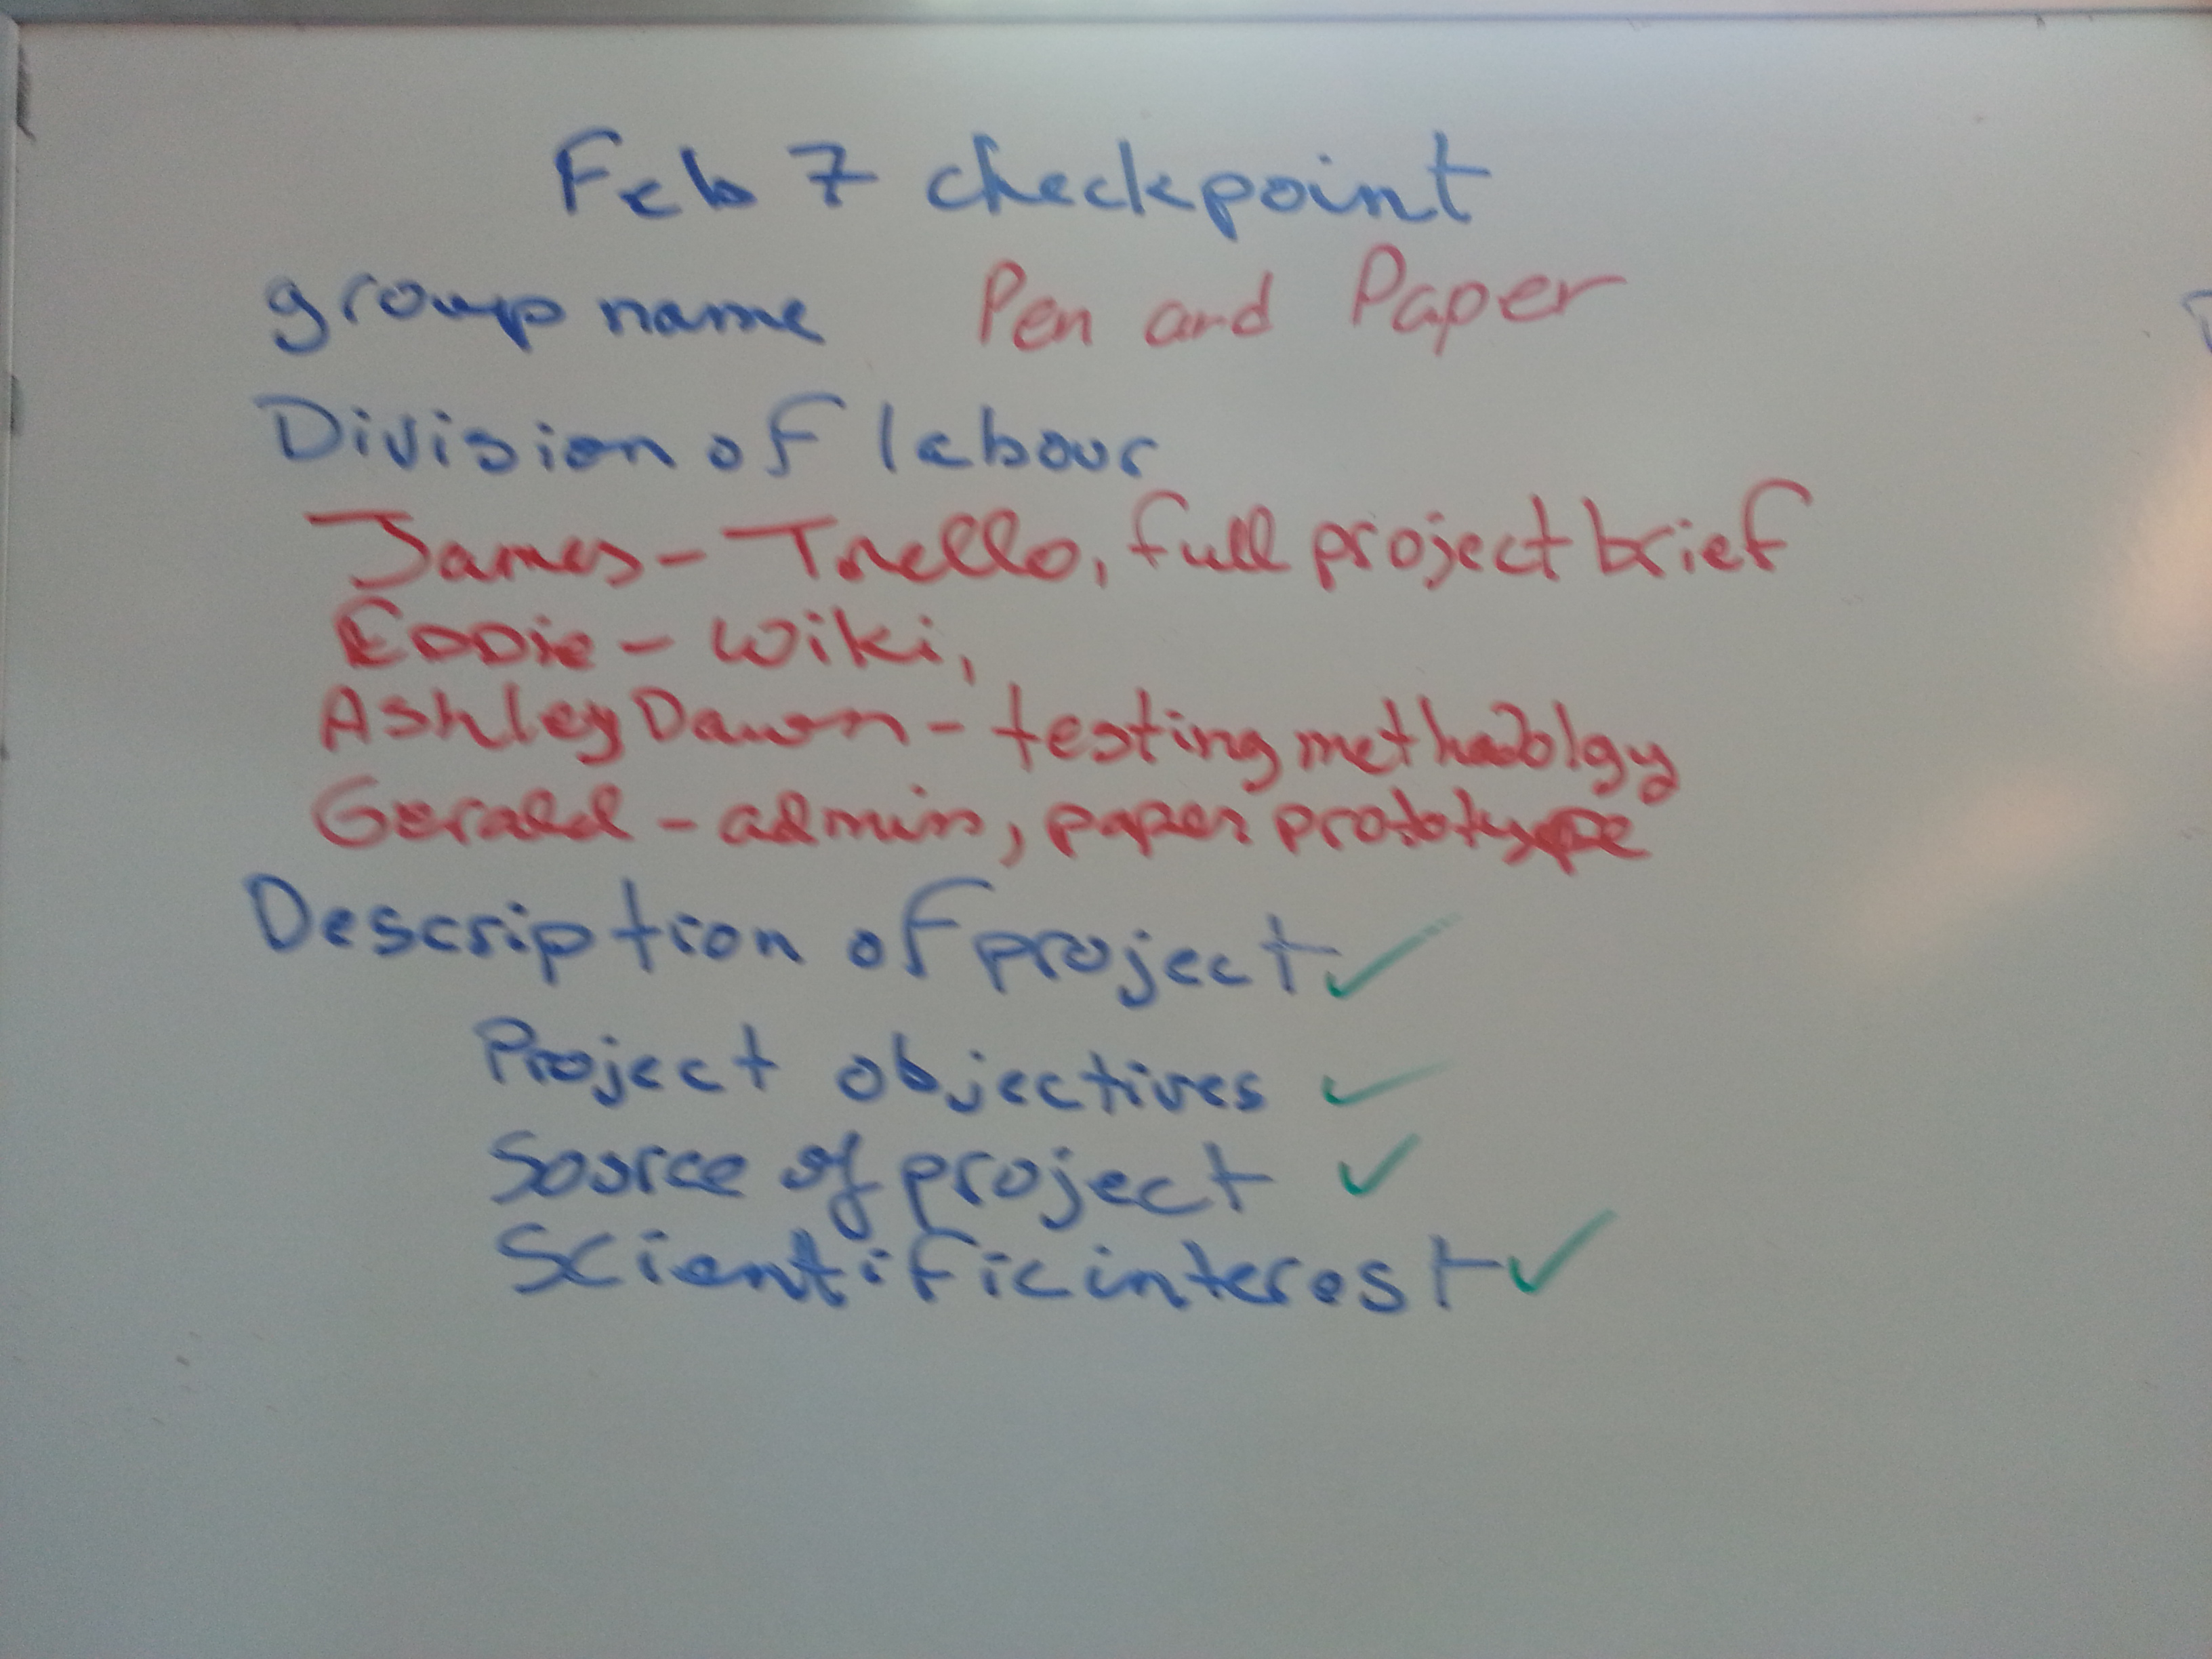 Feb 7 checkpoint
group name Pen and Paper
Division of labour
James - Trello, full project brief
Eddie - Wiki,
Ashley Dawn - testing methodolgy
Gerald - admin, paper prototype
Description of project ✓
Project objectives ✓
Source of project ✓
Scientific interest ✓